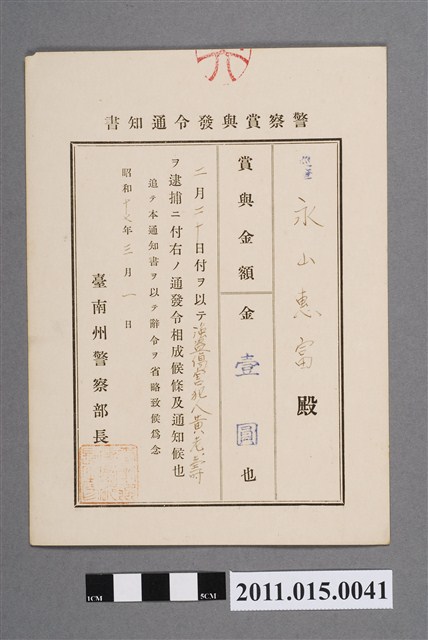 警察賞與發令通知書
永山惠富殿
賞與金額
金壹圓也
二月二十日付ヲ以テ強盜傷害犯人黃老壽
ヲ逮捕ニ付右ノ通發令相成候條及通知候也
追テ本通知書ヲ以テ辭令ヲ省略致候爲念
昭和十七年三月一日
臺南州警察部長
1CM
5CM
2011.015.0041